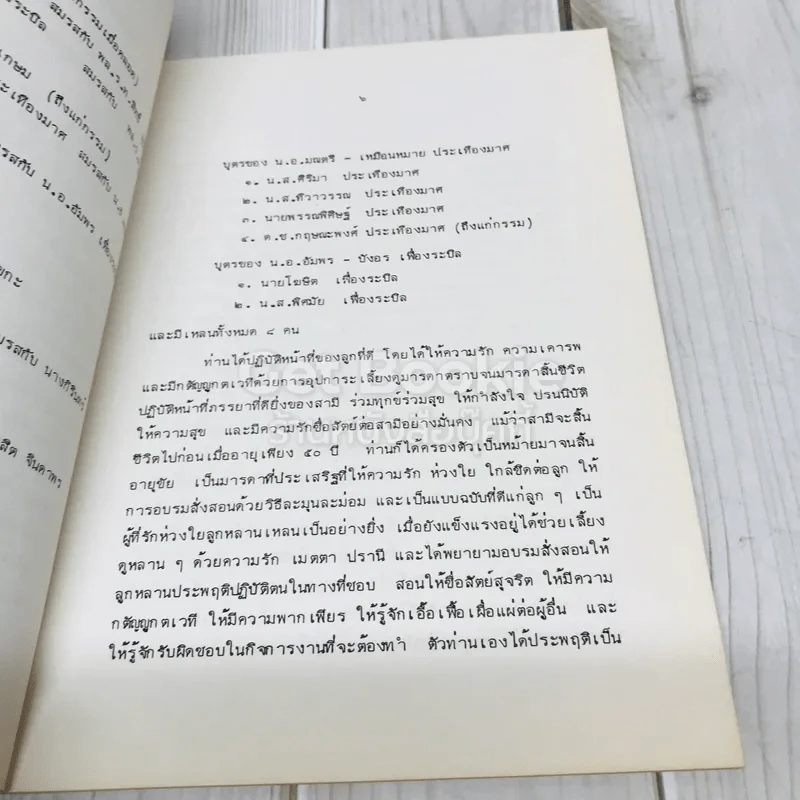 กรรมเมื่อคลอด)
ระบิล สมรสกับ พล.ร.ท.สิทธิ์
เกษม (ถึงแก่กรรม)
ระเทืองมาศ สมรสกับ
รสกับ น.อ.อัมพร เฟื่อง
ยกะ
มรสกับ นางกิรินทร์
สิต จินดาพร
๖
บุตรของ น.อ.มณตรี - เหมือนหมาย ประเทืองมาศ
๑. น.ส.ศิริมา ประเทืองมาศ
๒. น.ส.ทิวาวรรณ ประเทืองมาศ
๓. นายพรรณพิศิษฐ์ ประเทืองมาศ
๔. ด.ช.กฤษณะพงศ์ ประเทืองมาศ (ถึงแก่กรรม)
บุตรของ น.อ.อัมพร - บังอร เฟื่องระบิล
๑. นายโฆษิต เฟื่องระบิล
๒. น.ส.พิศมัย เฟื่องระบิล
และมีเหลนทั้งหมด ๘ คน
ท่านได้ปฏิบัติหน้าที่ของลูกที่ดี โดยได้ให้ความรัก ความเคารพ
และมีกตัญญูกตเวทีด้วยการอุปการะเลี้ยงดูมารดาตราบจนมารดาสิ้นชีวิต
ปฏิบัติหน้าที่ภรรยาที่ดียิ่งของสามี ร่วมทุกข์ร่วมสุข ให้กำลังใจ ปรนนิบัติ
ให้ความสุข และมีความรักซื่อสัตย์ต่อสามีอย่างมั่นคง แม้ว่าสามีจะสิ้น
ชีวิตไปก่อนเมื่ออายุเพียง ๕๐ ปี ท่านก็ได้ครองตัวเป็นหม้ายมาจนสิ้น
อายุขัย เป็นมารดาที่ประเสริฐที่ให้ความรัก ห่วงใย ใกล้ชิดต่อลูก ให้
การอบรมสั่งสอนด้วยวิธีละมุนละม่อม และเป็นแบบฉบับที่ดีแก่ลูก ๆ เป็น
ผู้ที่รักห่วงใยลูกหลานเหลนเป็นอย่างยิ่ง เมื่อยังแข็งแรงอยู่ได้ช่วยเลี้ยง
ดูหลาน ๆ ด้วยความรัก เมตตา ปรานี และได้พยายามอบรมสั่งสอนให้
ลูกหลานประพฤติปฏิบัติตนในทางที่ชอบ สอนให้ซื่อสัตย์สุจริต ให้มีความ
กตัญญูกตเวที ให้มีความพากเพียร ให้รู้จักเอื้อเฟื้อเผื่อแผ่ต่อผู้อื่น และ
ให้รู้จักรับผิดชอบในกิจการงานที่จะต้องทำ ตัวท่านเองได้ประพฤติเป็น
Get Bookie
ร้านหนังสือเก็ทบุ๊คกี้